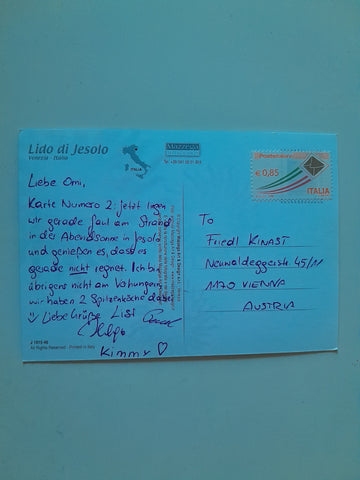 Lido di Jesolo
Venezia - Italia
ITALIA
Posteitaliane
€ 0,85
ITALIA
Liebe Omi,
Karte Numero 2: jetzt liegen
wir gerade faul am Strand
in der Abendsonne in Jesolo
und genießen es, dass es
gerade nicht regnet. Ich bin
übrigens nicht am Verhungern,
wir haben 2 Spitzenköche dabei
Liebe Grüße
Kimmy ♡
To
Friedl KINAST
Neuwaldeggerstr. 45/11
1170 VIENNA
AUSTRIA
All Rights Reserved - Printed in Italy